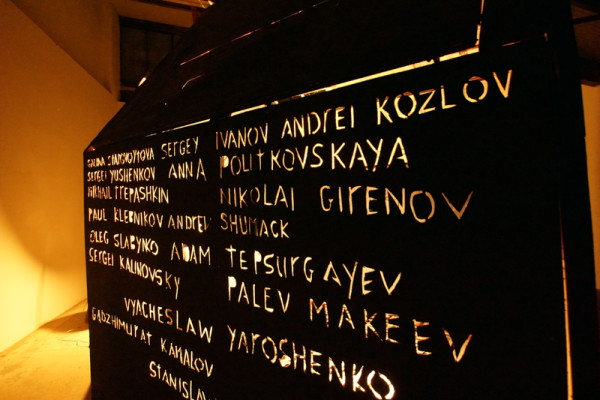 GALINA STAROVOYTOVA SERGEY IVANOV ANDREI KOZLOV
SERGEI YUSHENKOV ANNA POLITKOVSKAYA
MIKHAIL TREPASHKIN NIKOLAI GIRENOV
PAUL KLEBNIKOV ANDREV SHUMACK
OLEG SLABYNKO ADAM TEPSURGAYEV
SERGEI KALINOVSKY PALEV MAKEEV
VYACHESLAW YAROSHENKO
GADZHIMURAT KAMALOV
STANISLAW